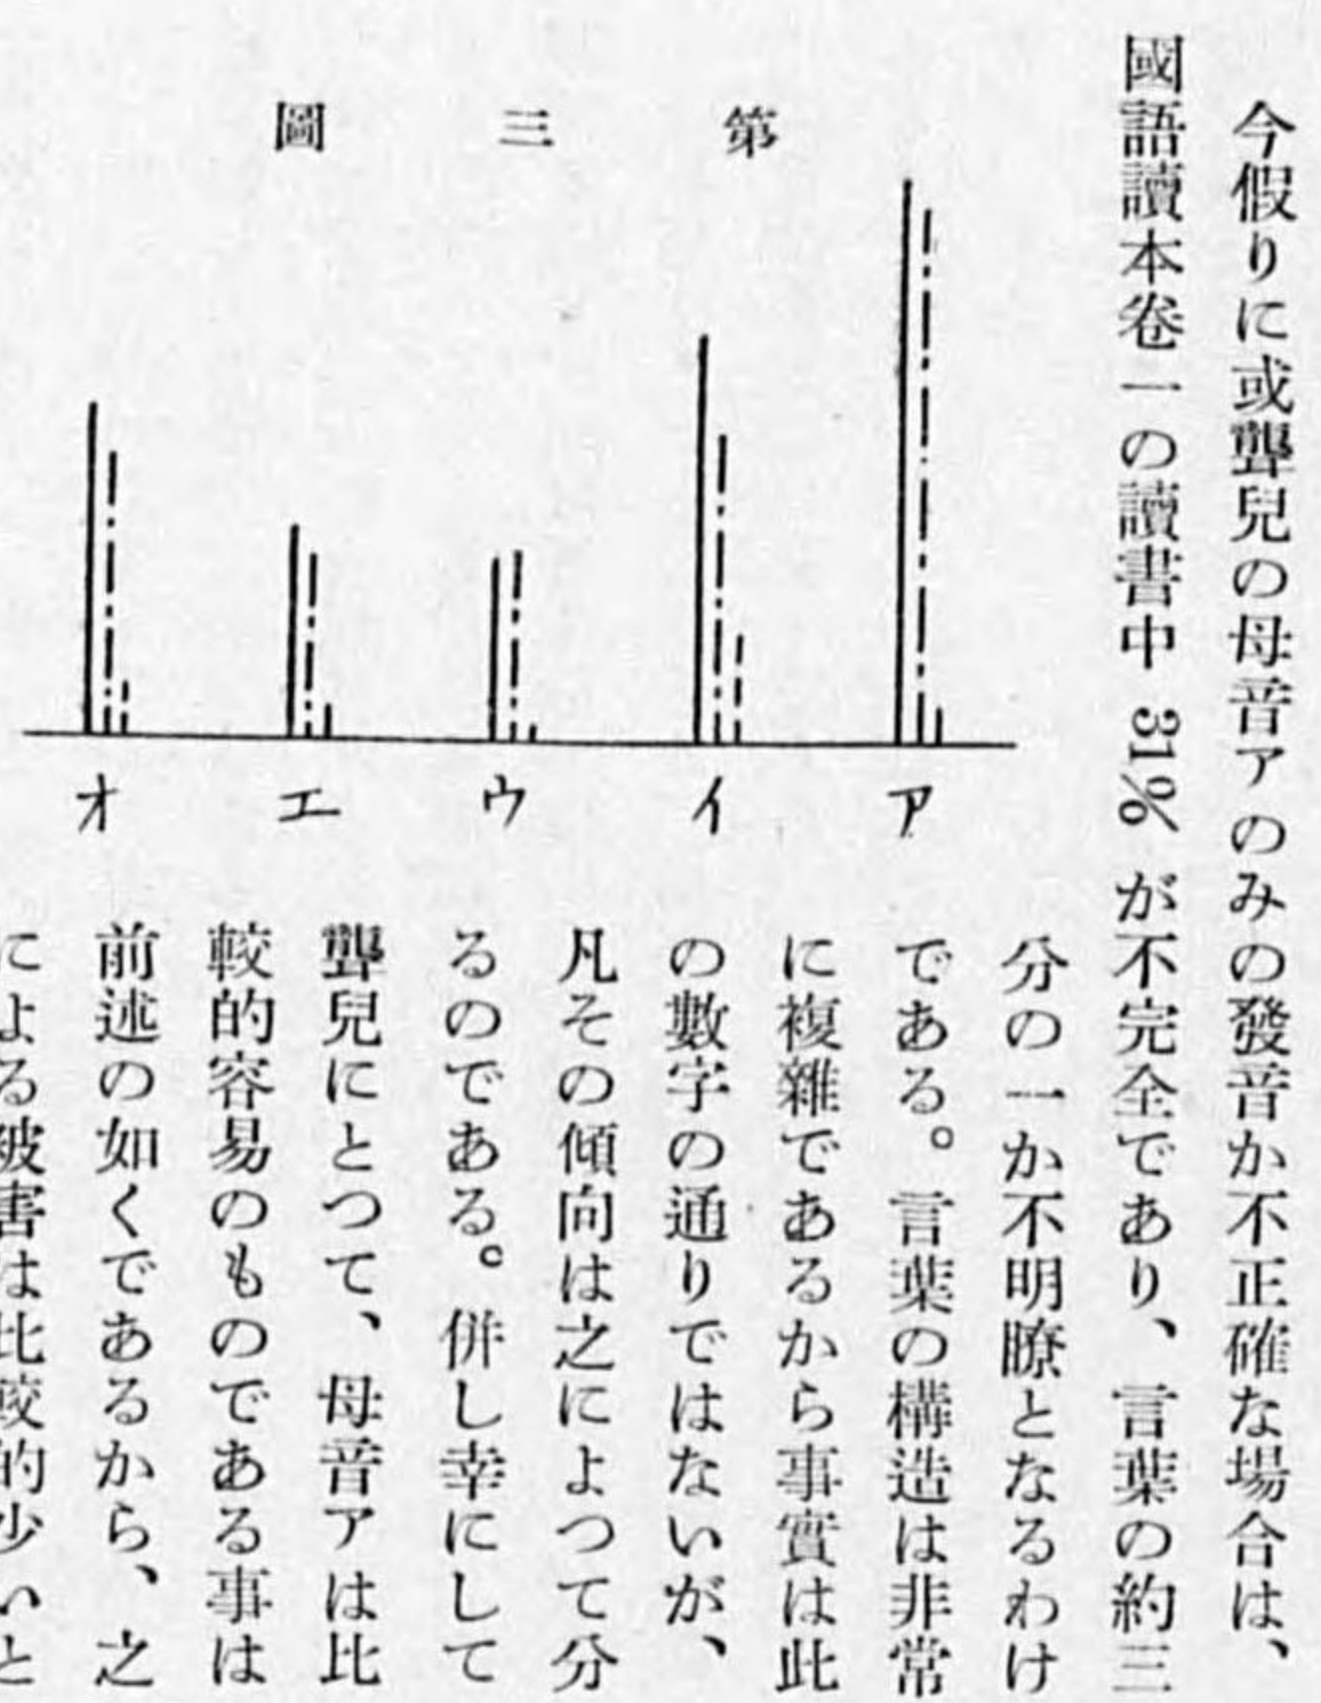 今假りに或聾兒の母音アのみの發音か不正確な場合は、
國語讀本卷一の讀書中 31% が不完全であり、言葉の約三
分の一か不明瞭となるわけ
である。言葉の構造は非常
に複雜であるから事實は此
の數字の通りではないが、
凡その傾向は之によつて分
るのである。併し幸にして
聾兒にとつて、母音アは比
較的容易のものである事は
前述の如くであるから、之
による被害は比較的少いと
第三圖
ア
イ
ウ
エ
オ